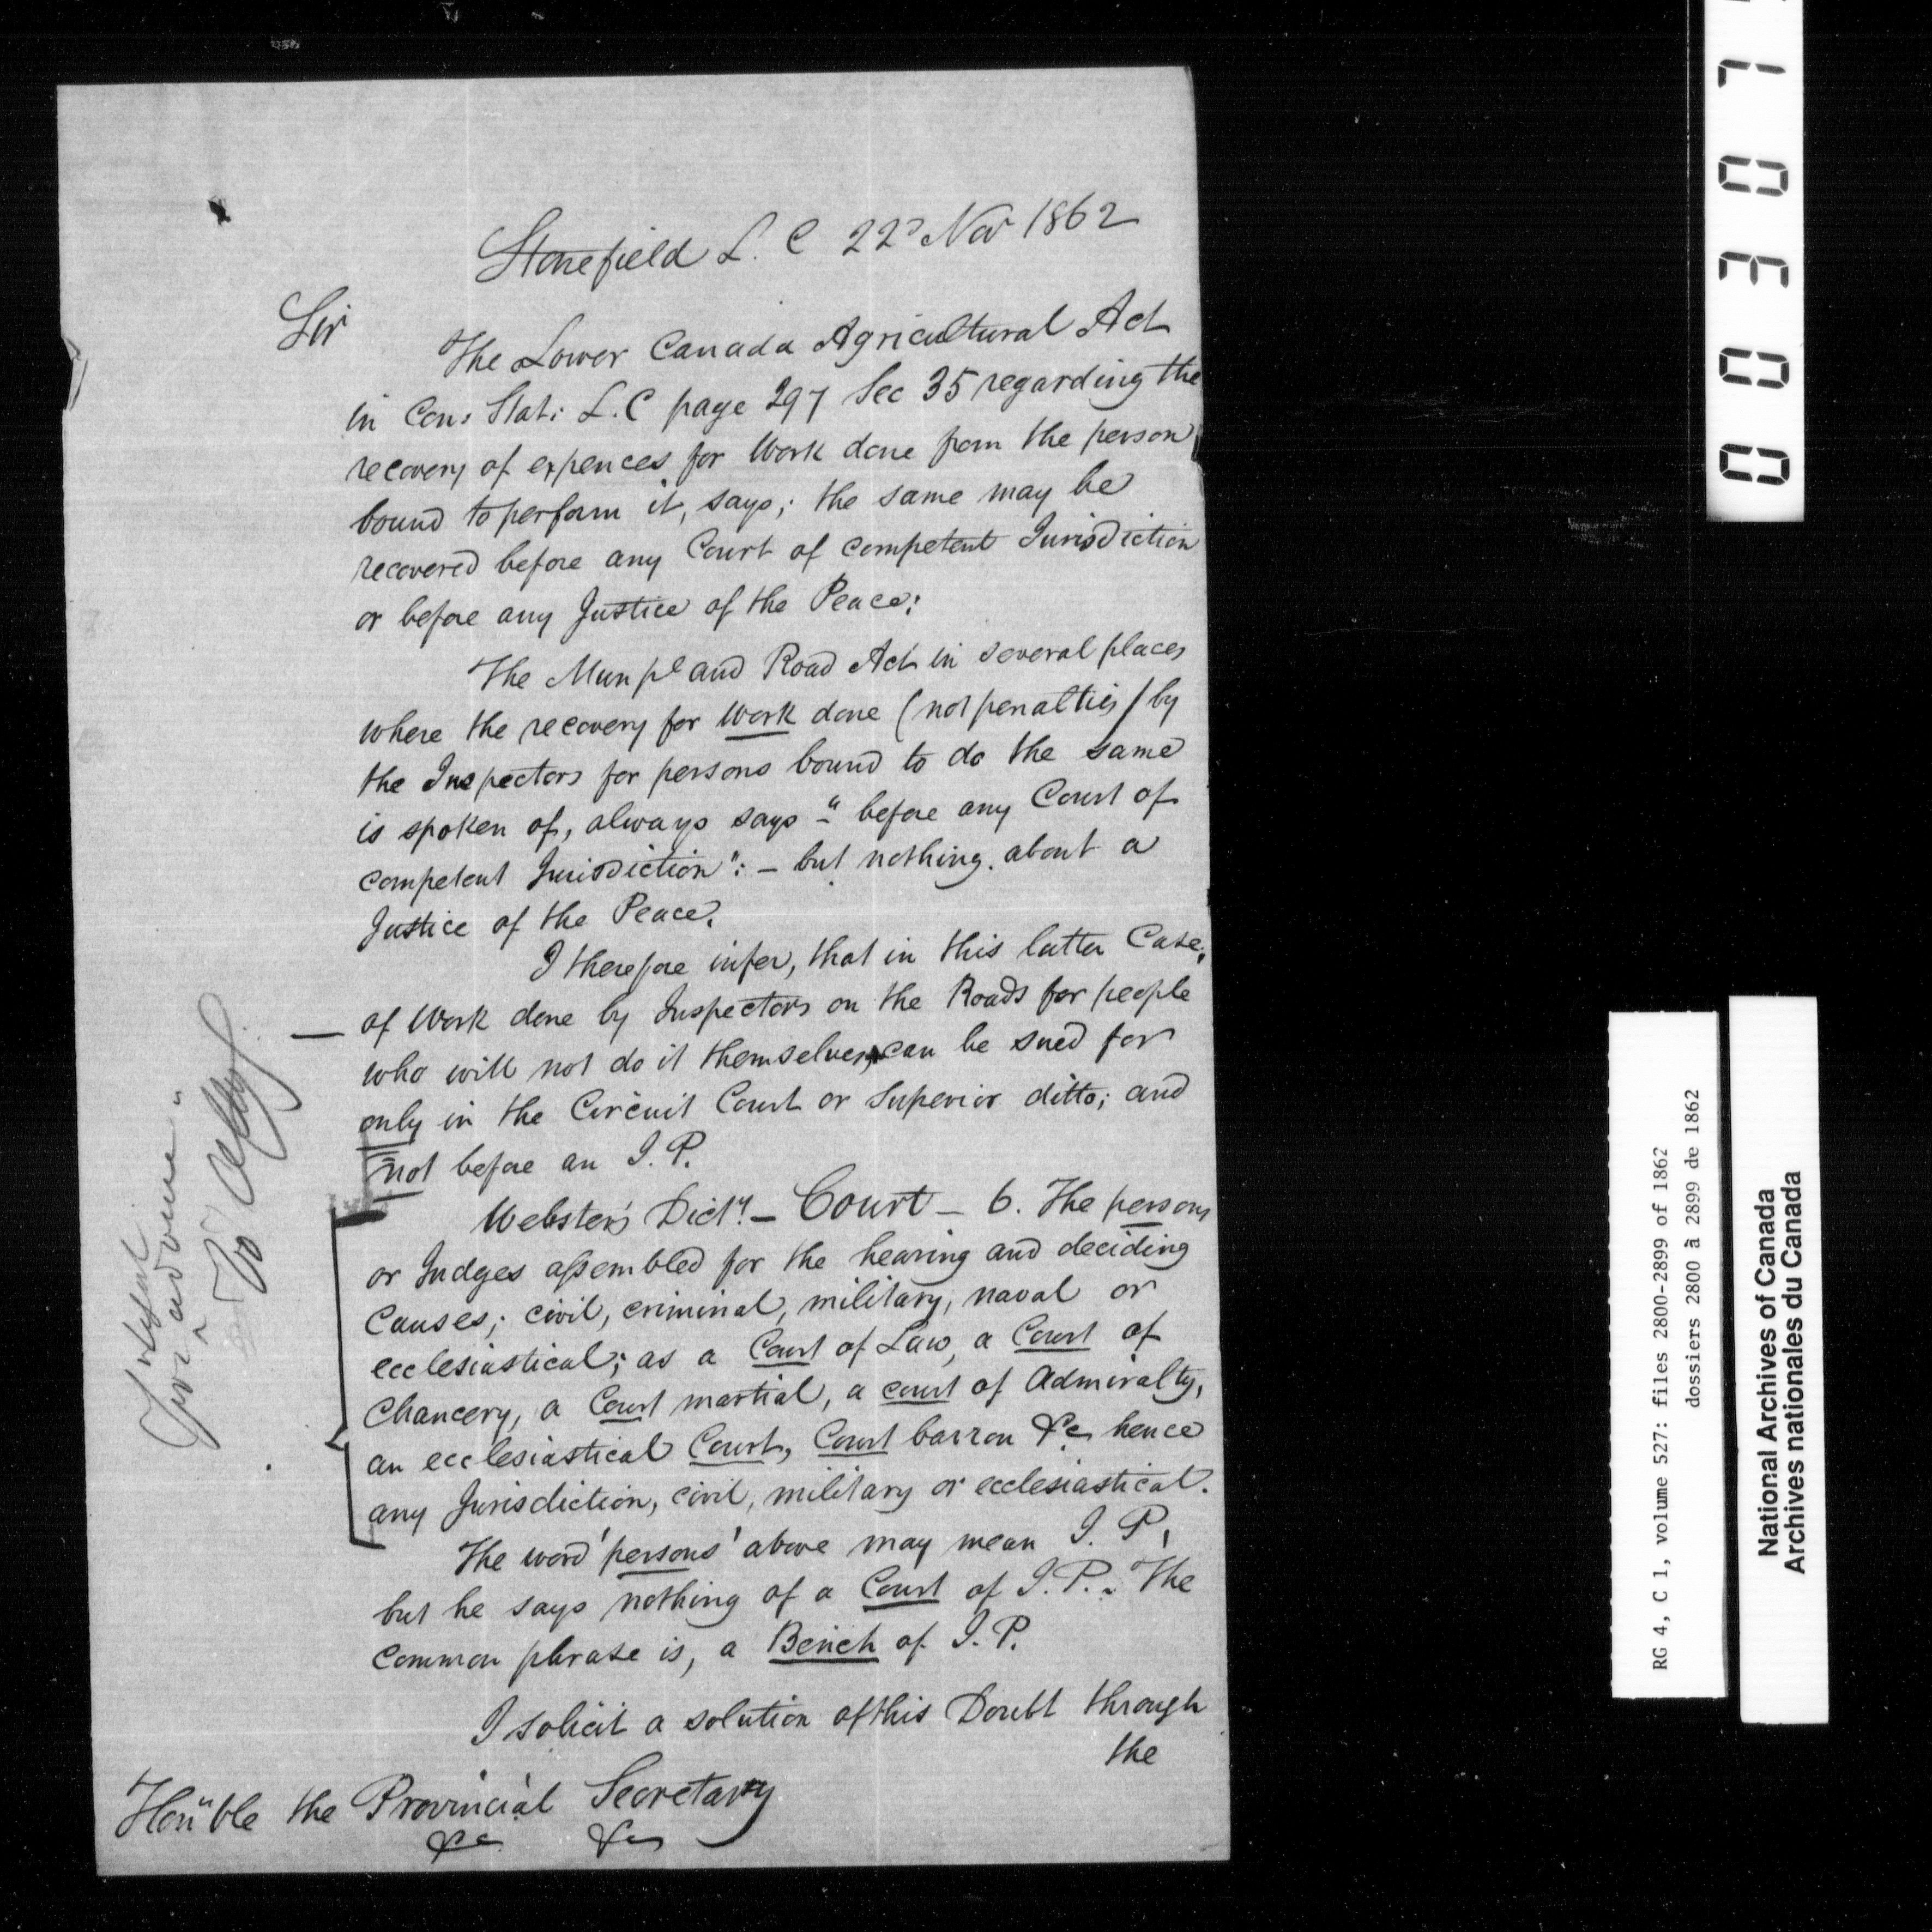 Stonefield L. C 22d Nov 1862
Sir
The Lower Canada Agricultural Act
in Con: Stat: L.C page 297 Sec 35 regarding the
recovery of expences for Work done from the person
bound to perform it, says; the same may be
recovered before any Court of competent Jurisdiction
or before any Justice of the Peace:
The Munpl and Road Act in several places
where the recovery for Work done (not penalties) by
the Inspectors for persons bound to do the same
is spoken of, always says - "before any Court of
competent Jurisdiction": - but nothing about a
Justice of the Peace.
I therefore infer, that in this latter Case,
— of Work done by Inspectors on the Roads for people
who will not do it themselves, can be sued for
only in the Circuit Court or Superior ditto; and
not before an J. P.
Webster's Dicty. — Court — 6. The persons
or Judges assembled for the hearing and deciding
Causes; civil, criminal, military, naval or
ecclesiastical; as a Court of Law, a Court of
Chancery, a Court martial, a court of Admiralty,
an ecclesiastical Court, Court barron &c hence
any Jurisdiction, civil, military or ecclesiastical.
The word 'persons' above may mean J. P.
but he says nothing of a Court of J.P.. The
common phrase is, a Bench of J. P.
I solicit a solution of this Doubt through
the
Honble the Provincial Secretary
&c &c
00307
RG 4, C 1, volume 527: files 2800-2899 of 1862
dossiers 2800 à 2899 de 1862
National Archives of Canada
Archives nationales du Canada